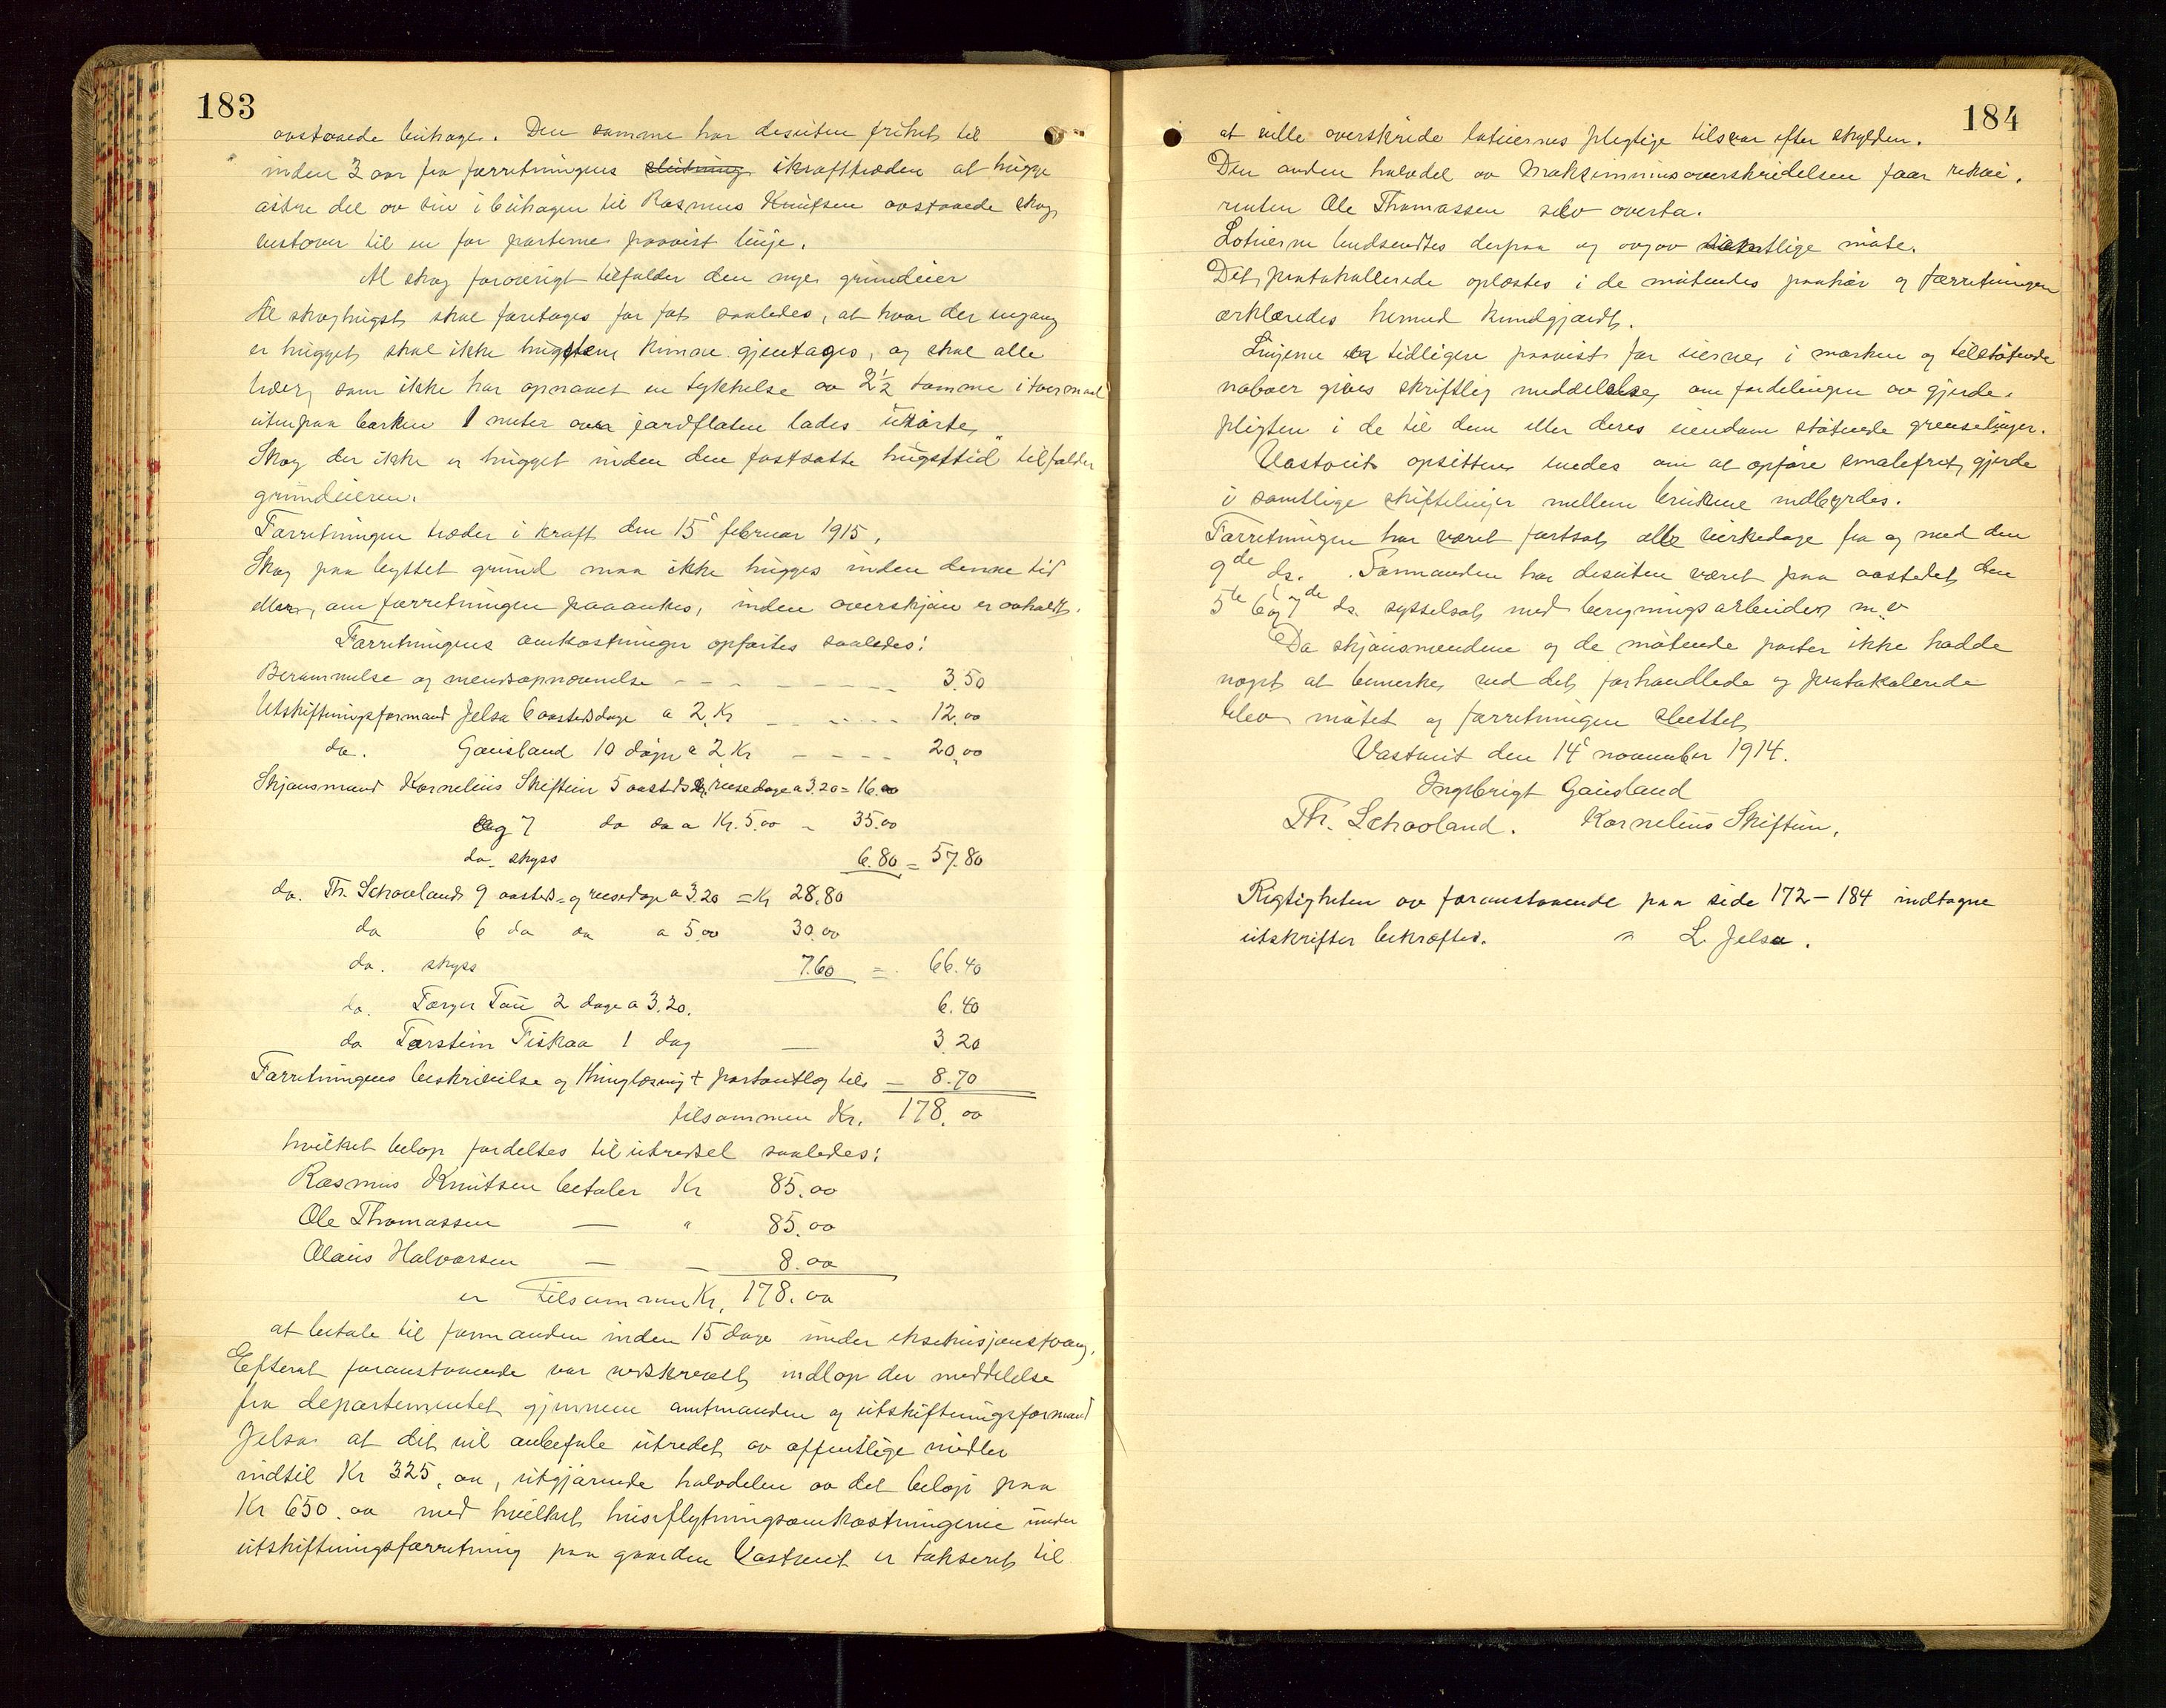 183
avstaaede beitrage. Den samme har desuten frihet til
inden 3 aar fra forretningens slutning ikrafttræden at hugge
østre del av sin i beihagen til Rasmus Knutsen avstaaede skog
vestover til en for parterne paavist linje.
Al skog forøvrigt tilfalder den nye grundeier
Al skoghugst skal foretages for fot saaledes, at hvor der engang
er hugget skal ikke hugsten kunne gjentages, og skal alle
trær, som ikke har opnaaet en tykkelse av 2½ tomme i tvermaal
utenpaa barken 1 meter over jordflaten lades urørte,
Skog der ikke er hugget inden den fastsatte hugsttid tilfalder
grundeieren.
Forretningen træder i kraft den 15de februar 1915,
Skog paa byttet grund maa ikke hugges inden denne tid
eller, om forretningen paaankes, inden overskjøn er avholdt.
Forretningens omkostninger opførtes saaledes:
Berammelse og mendsopnævnelse - - - - - 3.50
Utskiftningsformand Jelsa 6 aastedsdage a 2 Kr - - - - 12.00
do. Gausland 10 døgn a 2 Kr - - - - 20.00
Skjønsmand Kornelius Skiftun 5 aasteds & reisedage a 3.20 = 16.00
og 7 do do a Kr. 5.00 - 35.00
do. skyss 6.80 = 57.80
do. Th. Schooland 9 aasteds- og reisedage a 3.20 = Kr 28.80
do 6 do do a 5.00 30.00
do. skyss 7.60 = 66.40
do. Torger Tau 2 dage a 3.20. 6.40
do Torstein Fiskaa 1 dag — 3.20
Forretningens beskrivelse og thinglæsning + portoutlæg tils — 8.70
tilsammen Kr. 178.00
hvilket beløp fordeltes til utredsel saaledes:
Rasmus Knutsen betaler Kr 85.00
Ole Thomassen — " 85.00
Olaus Halvorsen — - 8.00
er tilsammen Kr. 178.00
at betale til formanden inden 15 dage under eksekusjonstvang.
Efterat foranstaaende var nedskrevet indløp der meddelelse
fra departementet gjennem amtmanden og utskiftningsformand
Jelsa at det vil anbefale utredet av offentlige midler
indtil Kr 325.00, utgjørende halvdelen av det beløp paa
Kr 650.00 med hvilket husflytningsomkostningerne under
utskiftningsforretning paa gaarden Vastveit er takseret til
184
at ville overskride lotuiernes pligtige tilsvar efter skylden.
Den anden halvdel av maksimumsoverskridelsen faar rekvi-
renten Ole Thomassen selv overta.
Lotuierne budsendtes derpaa og avgav samtlige møte.
Det protokollerede oplæstes i de møtendes paahør og forretningen
erklæredes hermed kundgjordt.
Linjerne er tidligere paavist for eierne i marken og tilstøtende
naboer gives skriftlig meddelelse, om fordelingen av gjerde-
pligten i de til dem eller deres eiendom støtende grenselinjer.
Vastveits opsittere enedes om at opføre smalefrit gjerde
i samtlige skiftelinjer mellem brukene indbyrdes.
Forretningen har været fortsat alle virkedage fra og med den
9de ds. Formanden har desuten været paa aastedet den
5te 6 og 7de ds. sysselsat med beregningsarbeider m. v
Da skjønsmendene og de møtende parter ikke hadde
noget at bemerke ved det forhandlede og protokolerede
blev møtet og forretningen sluttet
Vastveit den 14de november 1914.
Ingebrigt Gausland
Th. Schooland. Kornelius Skiftun.
Rigtigheten av foranstaaende paa side 172—184 indtagne
utskrifter bekræftes. L. Jelsa.